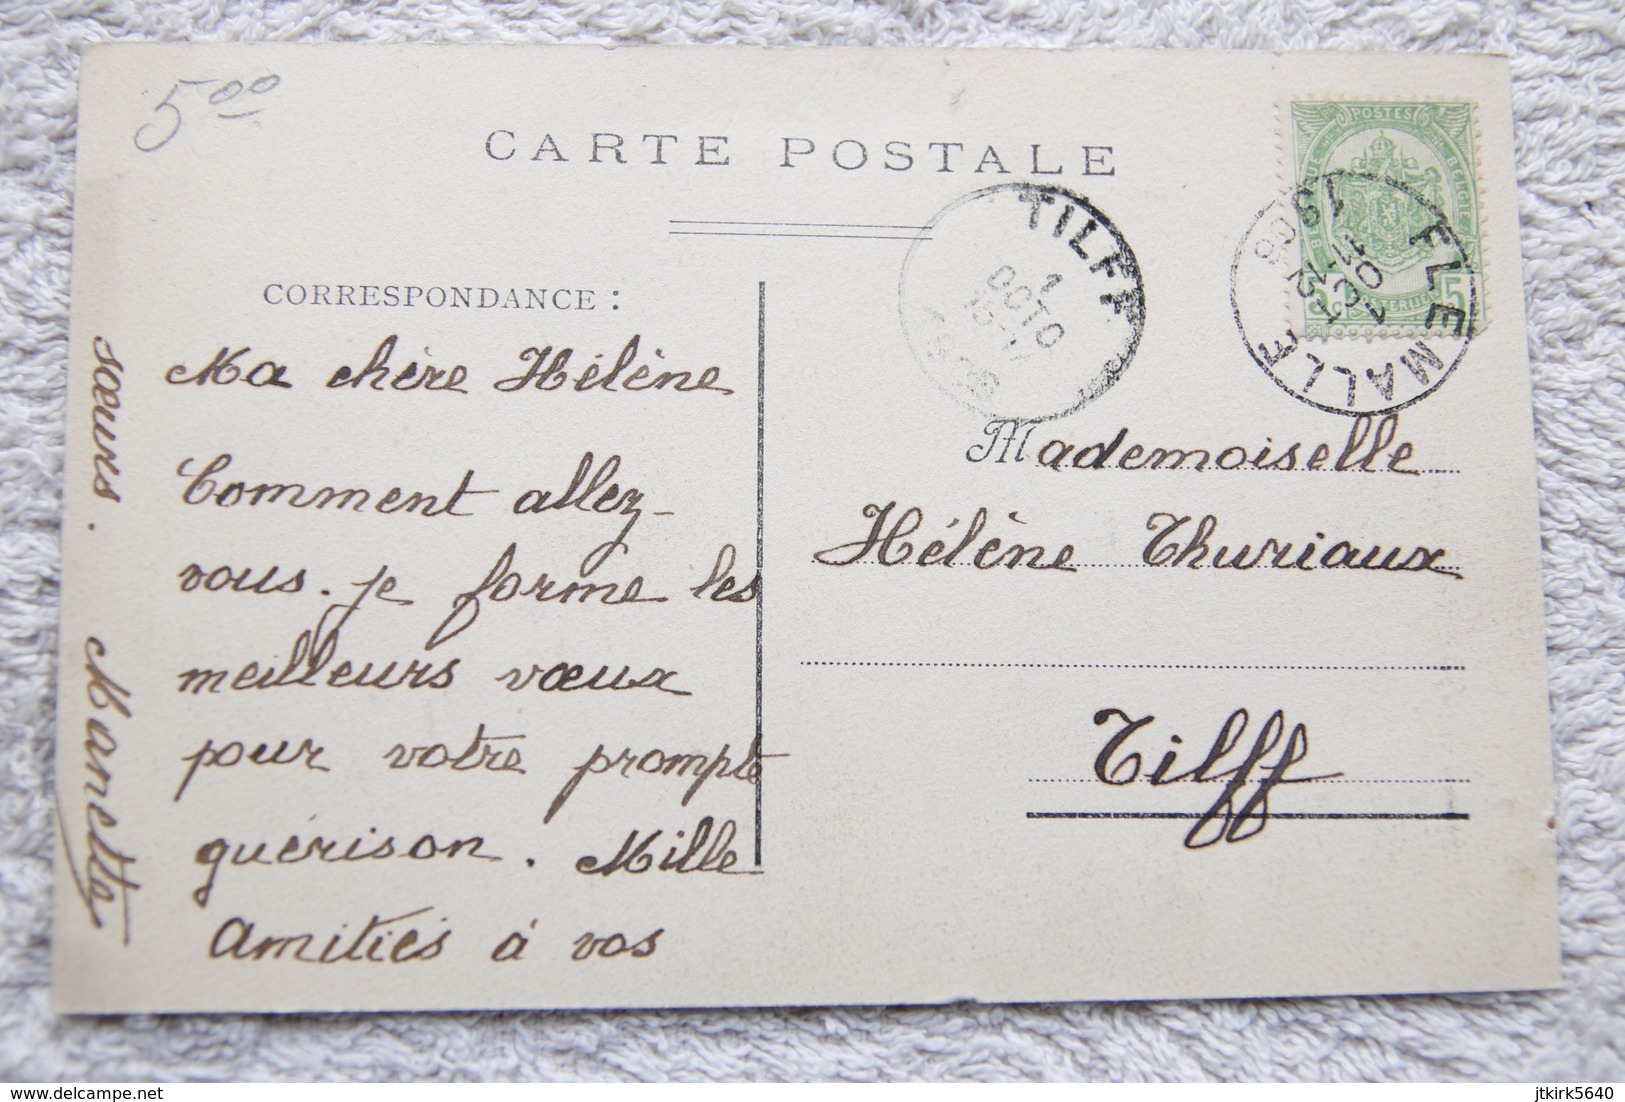 500
CARTE POSTALE
POSTES BELGIQUE
5 C POSTERIJEN 5
FLEMALLE
1 OCT
1908
TILFF
1
OCTO
1908
CORRESPONDANCE :
Ma chère Hélène
Comment allez-
vous. je forme les
meilleurs vœux
pour votre prompte
guérison. Mille
amitiés à vos
sœurs. Manette
Mademoiselle
Hélène Thuriaux
Tilff
delcampe.net
jtkirk5640